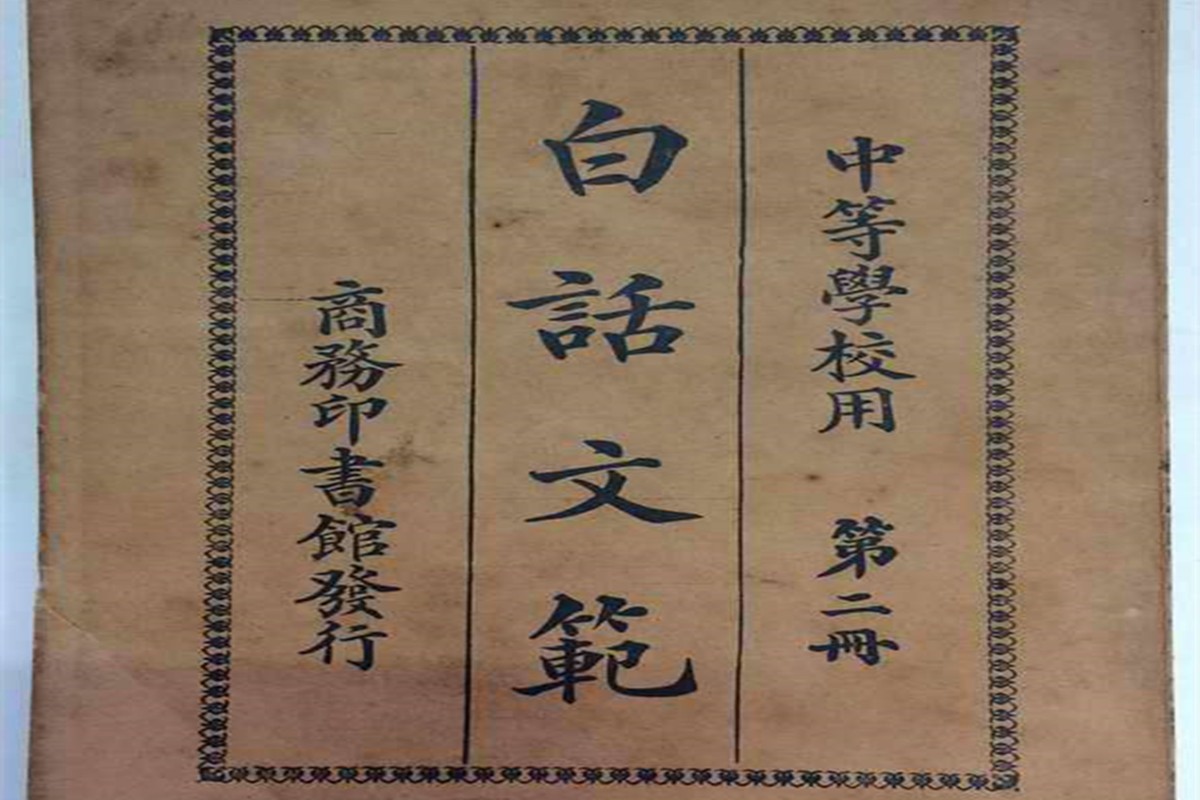 中等學校用 第二冊
白話文範
商務印書館發行